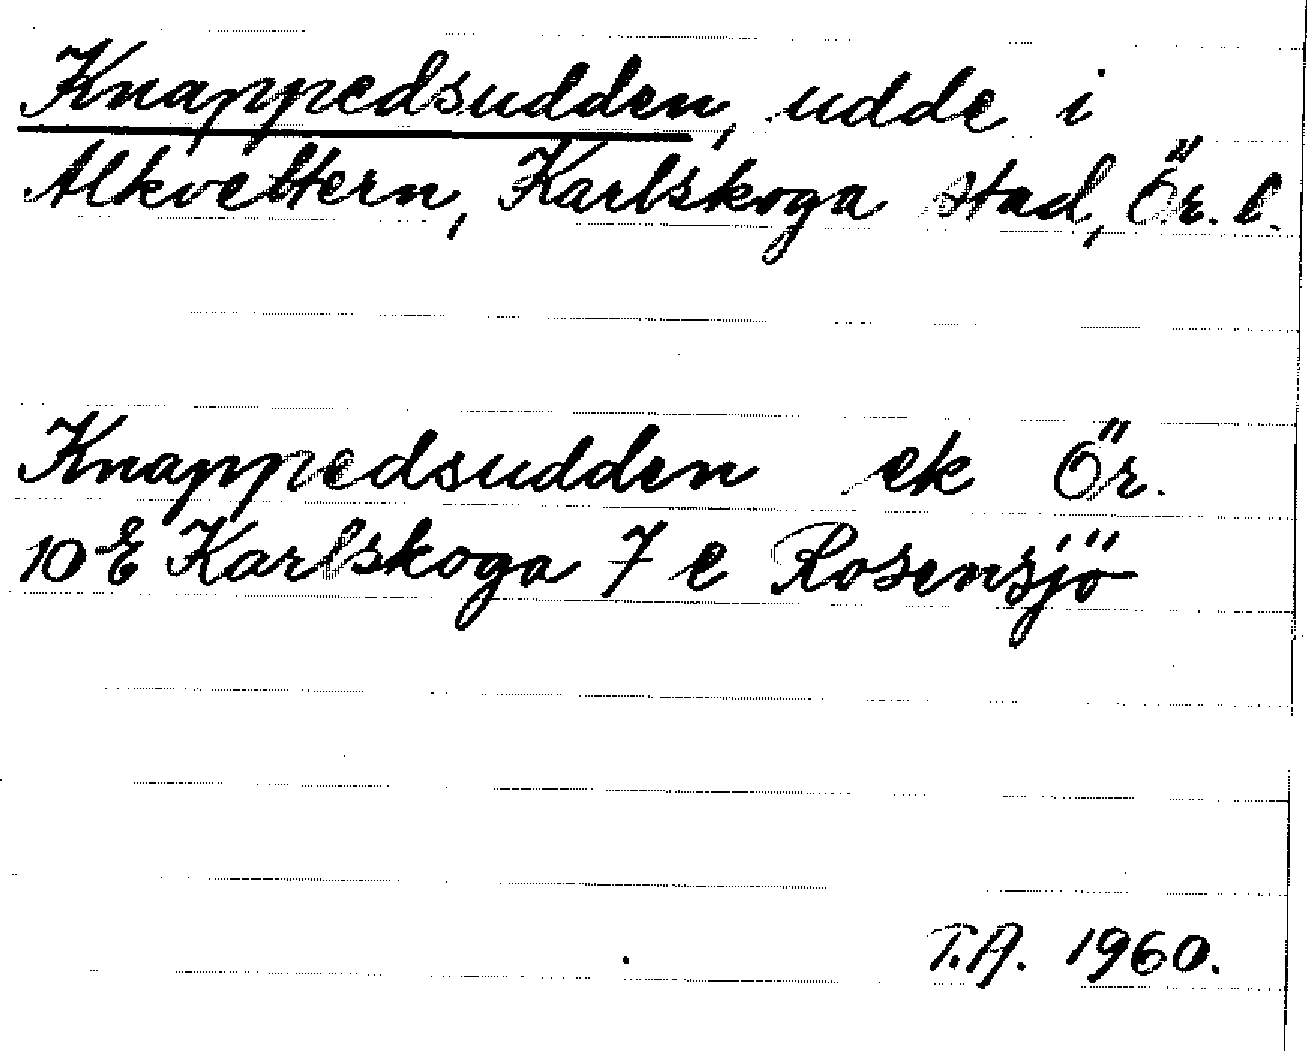 Knappedsudden, udde i
Alkvettern, Karlskoga stad, Ör. l.
Knappedsudden ek Ör.
10 E Karlskoga 7 e Rosensjö
T.A. 1960.